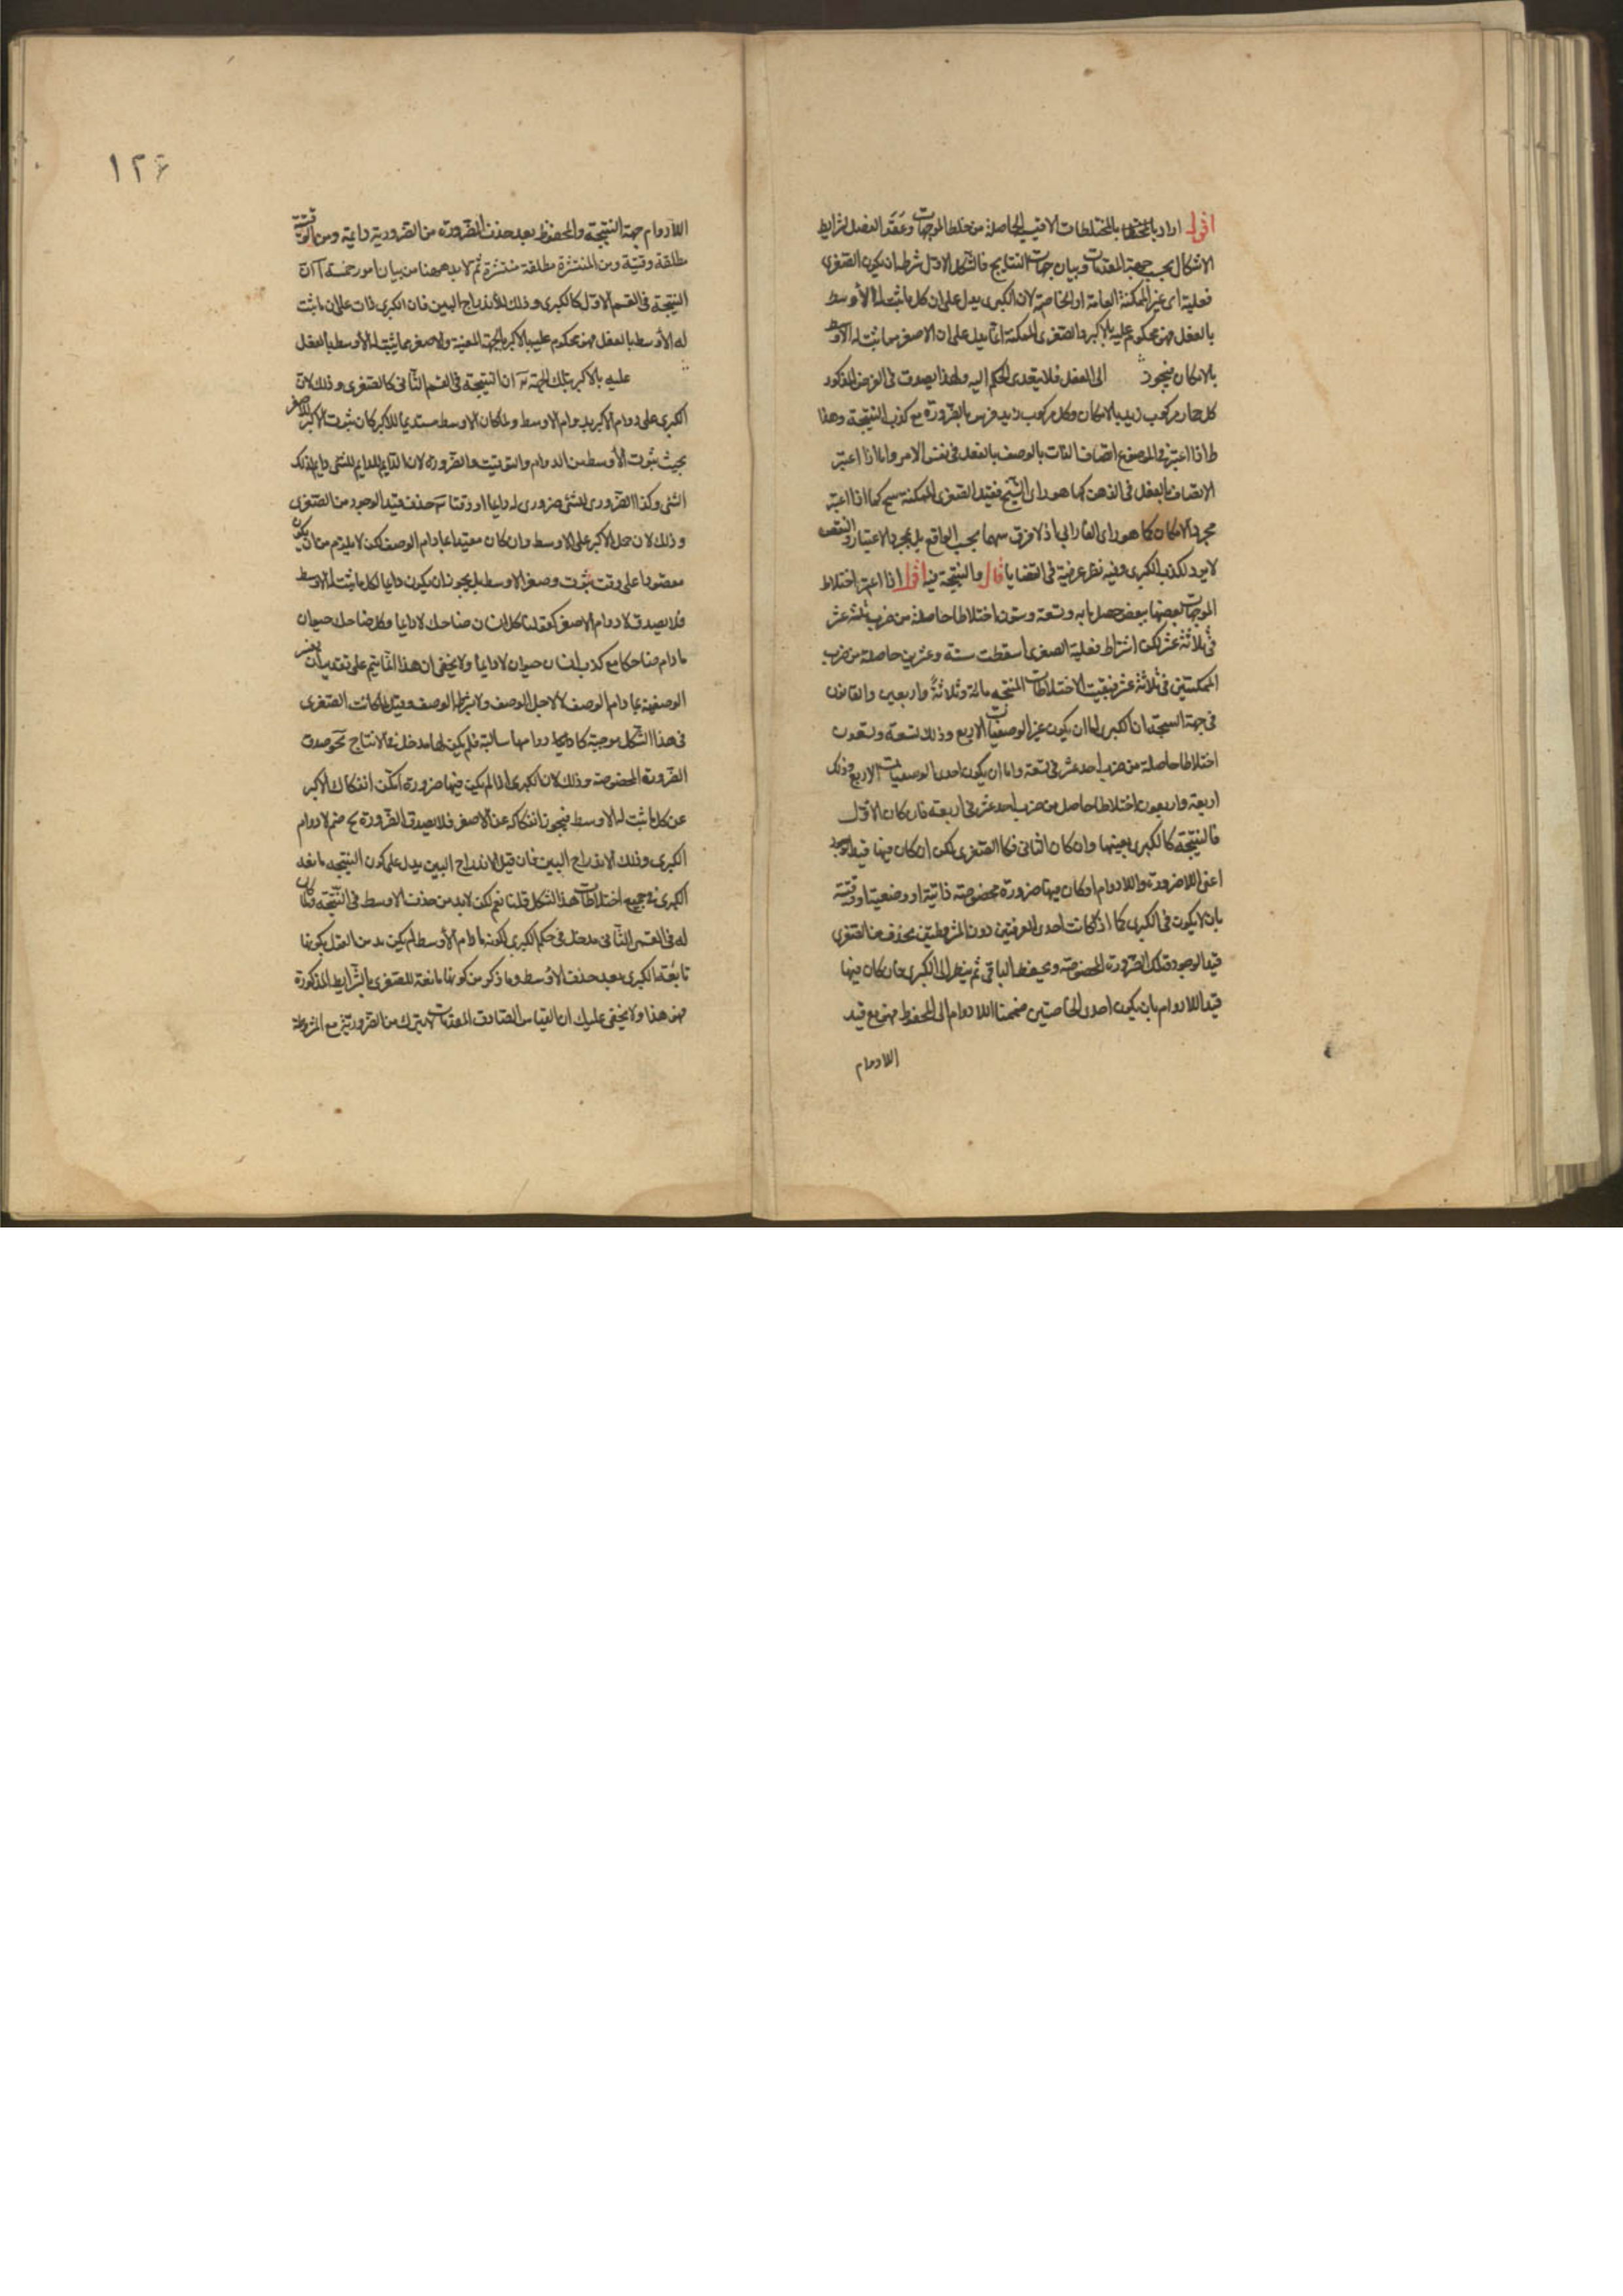 اقول اراد بالمختلطات الاقيسة الحاصلة من خلط الموجهات وعقد الفصل لشرايط
الاشكال بحسب جهة المقدمات وبيان جهات النتايج فالشكل الاول شرطه ان يكون الصغرى
فعلية اى غير الممكنة العامة او الخاصة لان الكبرى يدل على ان كل ما ثبت له الأوسط
بالفعل فهو محكوم عليه بالاكبر والصغرى الممكنة انما يدل على ان الاصغر مما ثبت له الاوسط
بالامكان فيجوز الى الفعل فلا يتعدى الحكم اليه ولهذا يصدق فى الفرض المذكور
كل حمار مركوب زيد بالامكان وكل مركوب زيد فرس بالضرورة مع كذب النتيجة وهذا
اذا اعتبر فى الموضوع اتصاف الذات بالوصف بالفعل فى نفس الامر واما اذا اعتبر
الاتصاف بالفعل فى الذهن كما هو راى الشيخ فيفيد الصغرى الممكنة ح كما اذا اعتبر
مجرد الامكان كما هو راى الفارابى اذ لا فرق بينهما بحسب الواقع بل بمجرد الاعتبار والنقض
لا يرد لكذب الكبرى وفيه نظر عرفته فى القضايا قال والنتيجة فيه اقول اذا اعتبر اختلاط
الموجهات بعضها ببعض حصل مايه وتسعة وستون اختلاطا حاصلة من ضرب ثلثة عشر
فى ثلاثة عشر لكن اشتراط فعلية الصغرى اسقطت ستة وعشرين حاصلة من ضرب
الممكنتين فى ثلاثة عشر فبقيت الاختلاطات المنتجه مائة وثلاثةً واربعين والقانون
فى جهة النتيجة ان الكبرى اما ان يكون غير الوصفيات الاربع وذلك تسعة وتسعون
اختلاطا حاصلة من ضرب احد عشر فى تسعة واما ان يكون احدى الوصفيات الاربع وذلك
اربعة واربعون اختلاطا حاصل من ضرب احد عشر فى اربعة فان كان الاول
فالنتيجة كالكبرى بعينها وان كان الثانى فكالصغرى لكن ان كان فيها قيد الوجود
اعنى اللاضرورة واللادوام او كان فيها ضرورة مخصوصة ذاتية او وصفية او وقتية
بان لا يكون فى الكبرى كما اذا كانت احدى العرفيتين دون المشروطتين يحذف من الصغرى
قيد الوجود وتلك الضرورة المخصوصة ويحفظ الباقى ثم ينظر الى الكبرى فان كان فيها
قيد اللادوام بان يكون احدى الخاصتين ضممنا اللادوام الى المحفوظ فهو مع قيد
اللادوام
١٢۶
اللادوام جهة النتيجة والمحفوظ بعد حذف الضرورة من الضرورية دايمة ومن الوقتية
مطلقة وقتية ومن المنتشرة مطلقة منتشرة ثم لا بد ههنا من بيان امور خمسة آ ان
النتيجة فى القسم الاول كالكبرى وذلك للاندراج البين فان الكبرى دلت على ان ما ثبت
له الأوسط بالفعل فهو محكوم عليه بالاكبر بالجهة المعينة والاصغر مما يثبت له الأوسط بالفعل
عليه بالاكبر بتلك الجهة ب ان النتيجة فى القسم الثانى كالصغرى وذلك لان
الكبرى على دوام الاكبر بدوام الاوسط ولما كان الاوسط مستديما للاكبر كان ثبوت الاكبر للاصغر
بحسب ثبوت الأوسط من الدوام والتوقيت والضرورة لان الدايم للدايم للشئ دايم لذلك
الشئ وكذا الضرورى للشئ ضرورى له دايما او وقتا ج حذف قيد الوجود من الصغرى
وذلك لان حمل الاكبر على الاوسط وان كان مقيدا عادام الوصف لكن لا يلزم من ان يكون
مقصورا على وقت ثبوت وصف الاوسط بل يجوز ان يكون دايما لكل ما يثبت له الاوسط
فلا يصدق لا دوام الاصغر كقولنا كل انسان ضاحك لا دايما وكل ضاحك حيوان
ما دام ضاحكا مع كذب انسان حيوان لا دايما ولا يخفى ان هذا انما يتم على تقدير ان يفسر
الوصفية بما دام الوصف لا لاجل الوصف ولا بشرط الوصف وقيل لما كانت الصغرى
فى هذا الشكل موجبة كان لا دوامها سالبة فلم يكن لها مدخل فى الانتاج ج صدق
الضرورة المخصوصة وذلك لان الكبرى اذا لم يكن فيها ضرورة امكن انفكاك الاكبر
عن كل ما ثبت له الاوسط فيجوز انفكاكه عن الاصغر فلا يصدق الضرورة ح ضم لا دوام
الكبرى وذلك الاندراج البين فان قيل الاندراج البين يدل على كون النتيجه تابعة
الكبرى فى جميع اختلاطات هذا الشكل قلنا نعم لكن لا بد من حذف الاوسط فى النتيجة فلما كان
له فى القسم الثانى مدخل فى حكم الكبرى لكونه ما دام الأوسط لم يكن بد من القول بكونها
تابعة الكبرى بعد حذف الاوسط وما ذكر من كونها تابعة للصغرى بالشرايط المذكورة
فهو هذا ولا يخفى عليك ان القياس الصادق المقدمات لا يترك من الضروريتين مع المشروطة